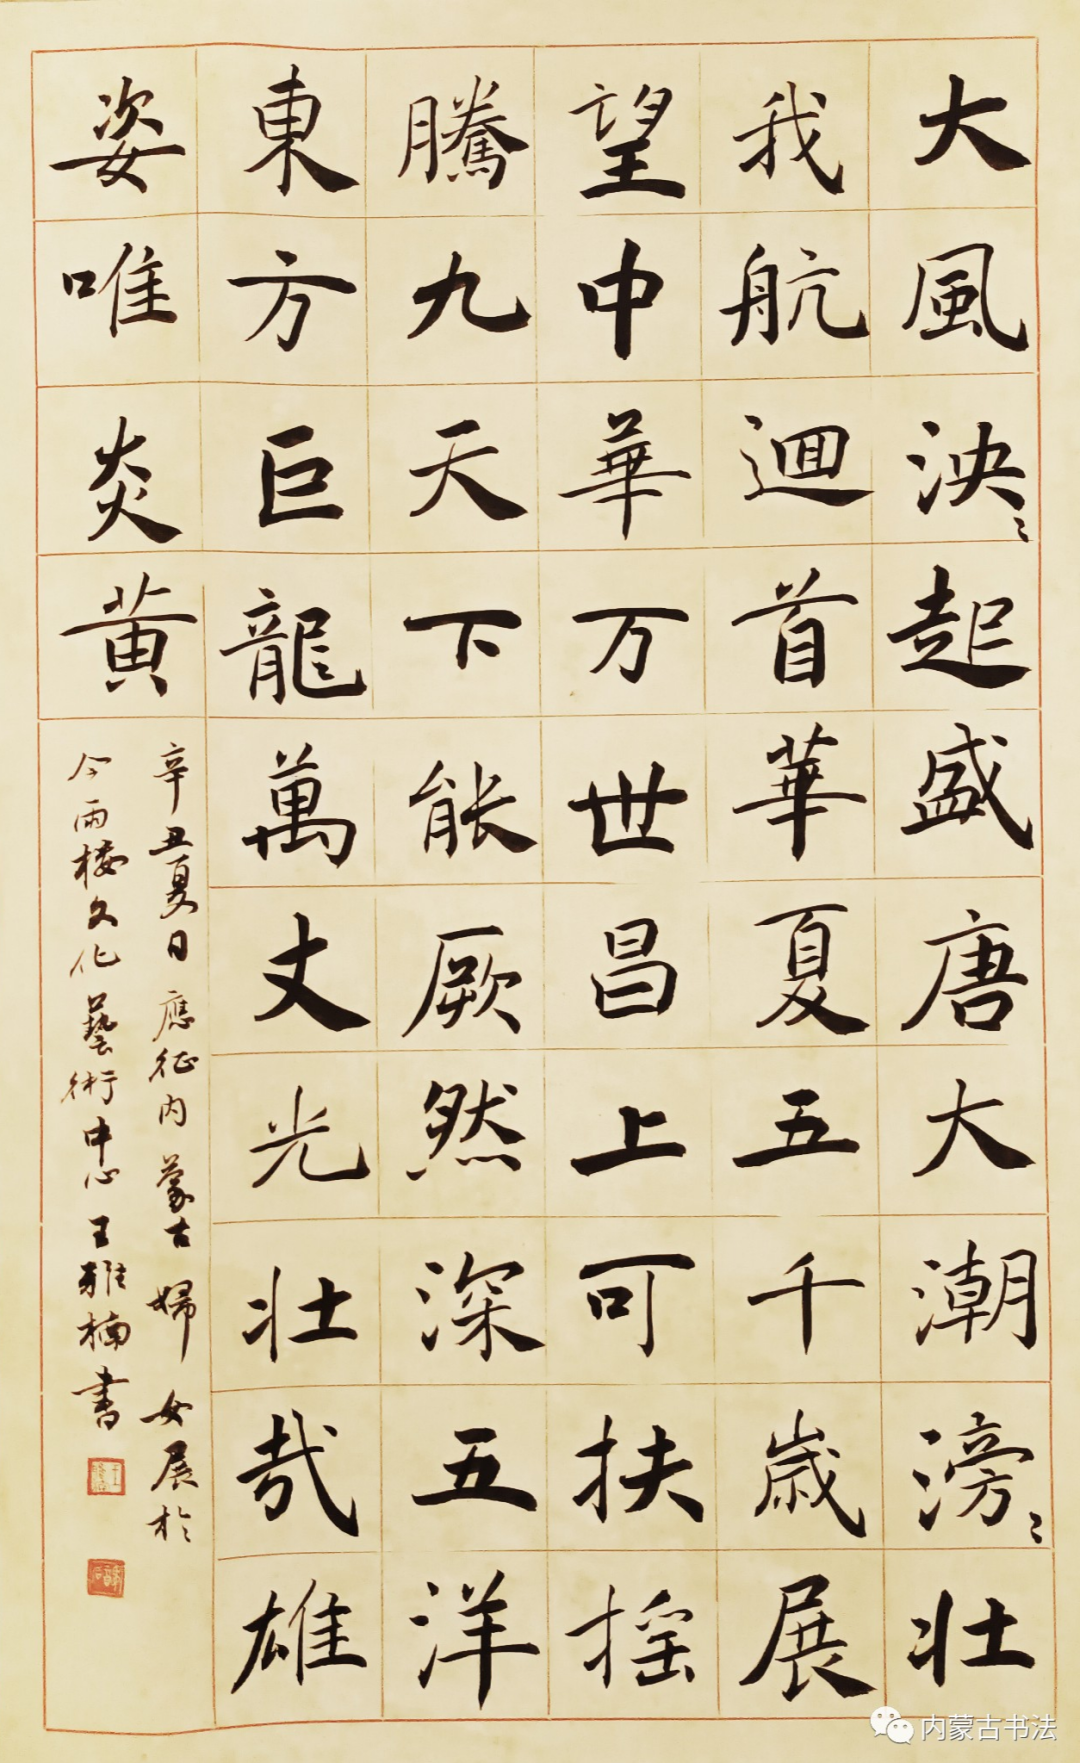 大風泱〻起盛唐大潮滂〻壮
我航迴首華夏五千歲展
望中華万世昌上可扶摇
騰九天下能厥然深五洋
東方巨龍萬丈光壮哉雄
姿唯炎黄
辛丑夏日應征内蒙古婦女展於
今雨楼文化藝術中心王雅楠書
内蒙古书法